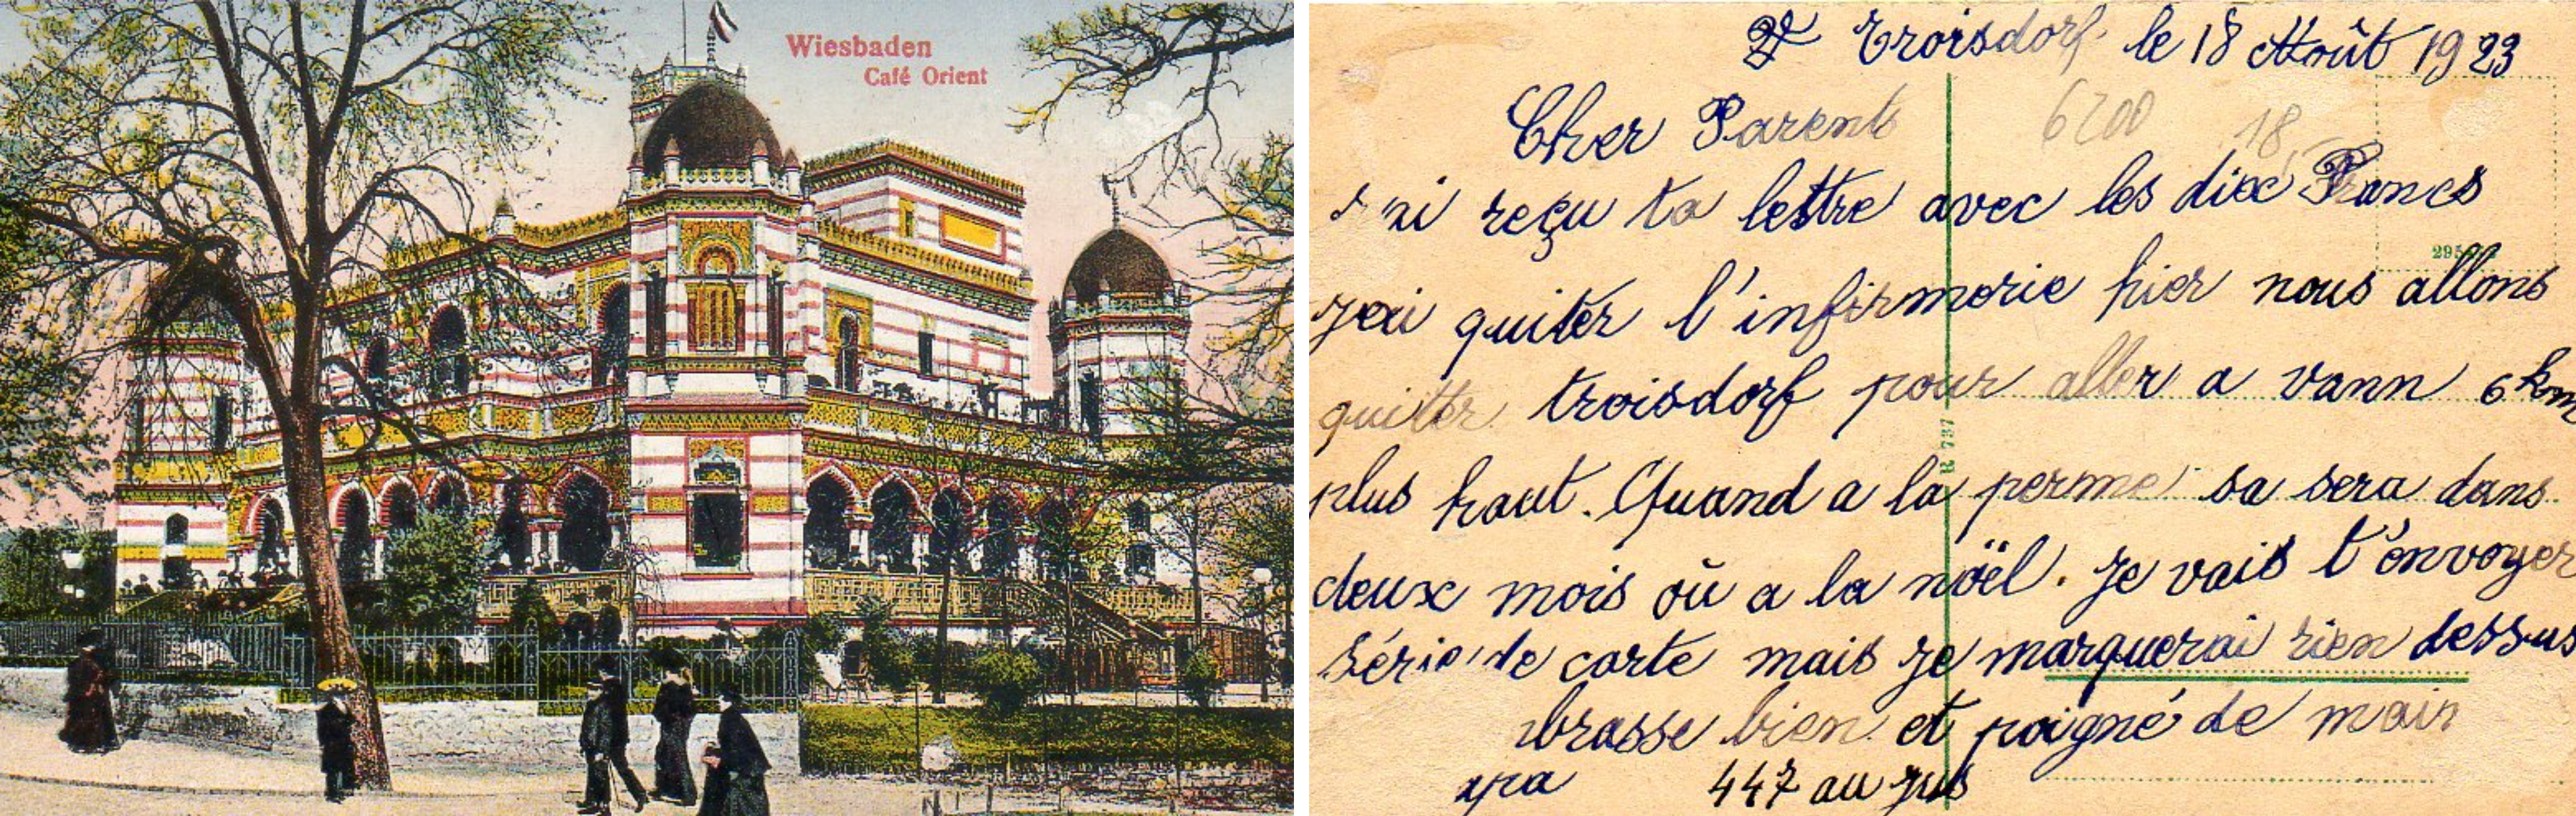 Wiesbaden
Café Orient
Troisdorf le 18 Août 1923
Cher Parent
6200
18
J'ai reçu ta lettre avec les dix Francs
295
jeai quiter l'infirmerie hier nous allons
quitter troisdorf pour aller a vann 6 km
R 737
plus haut. Quand a la perme sa sera dans
deux mois où a la nöel. Je vais t'envoyer
série de carte mais je marquerai rien dessus
brasse bien et poigné de main
447 au jus